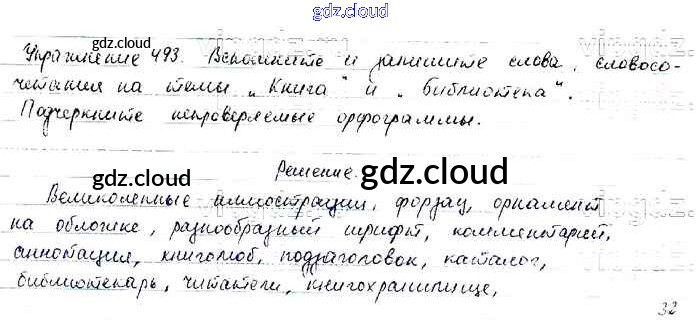 gdz.cloud
Упражнение 493. Вспомните и запишите слова, словосо-
четания на темы „Книга" и „библиотека".
Подчеркните непроверяемые орфограммы.
Решение.
Великолепные иллюстрации, форзац, орнамент
на обложке, разнообразный шрифт, комментарий,
аннотация, книголюб, подзаголовок, каталог,
библиотекарь, читатели, книгохранилище,
32
gdz.cloud
gdz.cloud
gdz.cloud
gdz.cloud
gdz.cloud
gdz.cloud